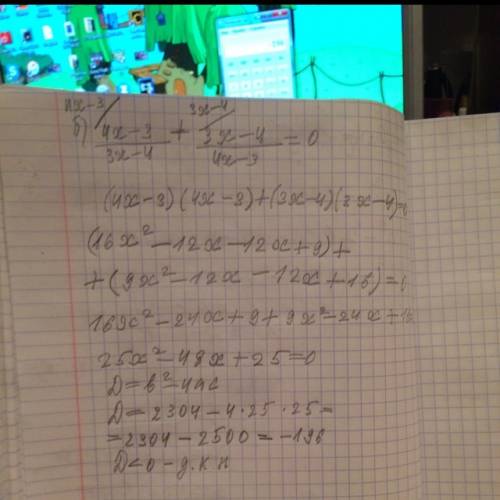 4x-3/ 3x-4/
б) (4x-3)/(3x-4) + (3x-4)/(4x-3) = 0
(4x-3)(4x-3)+(3x-4)(3x-4)=0
(16x²-12x-12x+9)+
+(9x²-12x-12x+16)=0
16x²-24x+9+9x²-24x+16
25x²-48x+25=0
D=b²-4ac
D=2304-4·25·25=
=2304-2500=-196
D<0-д.к н